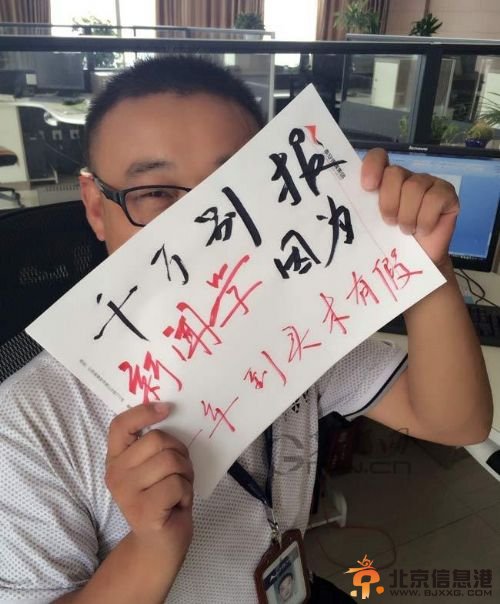 千万别报
新闻学 因为
一年到头未有假
lenovo
北京信息港
WWW.BJXXG.COM